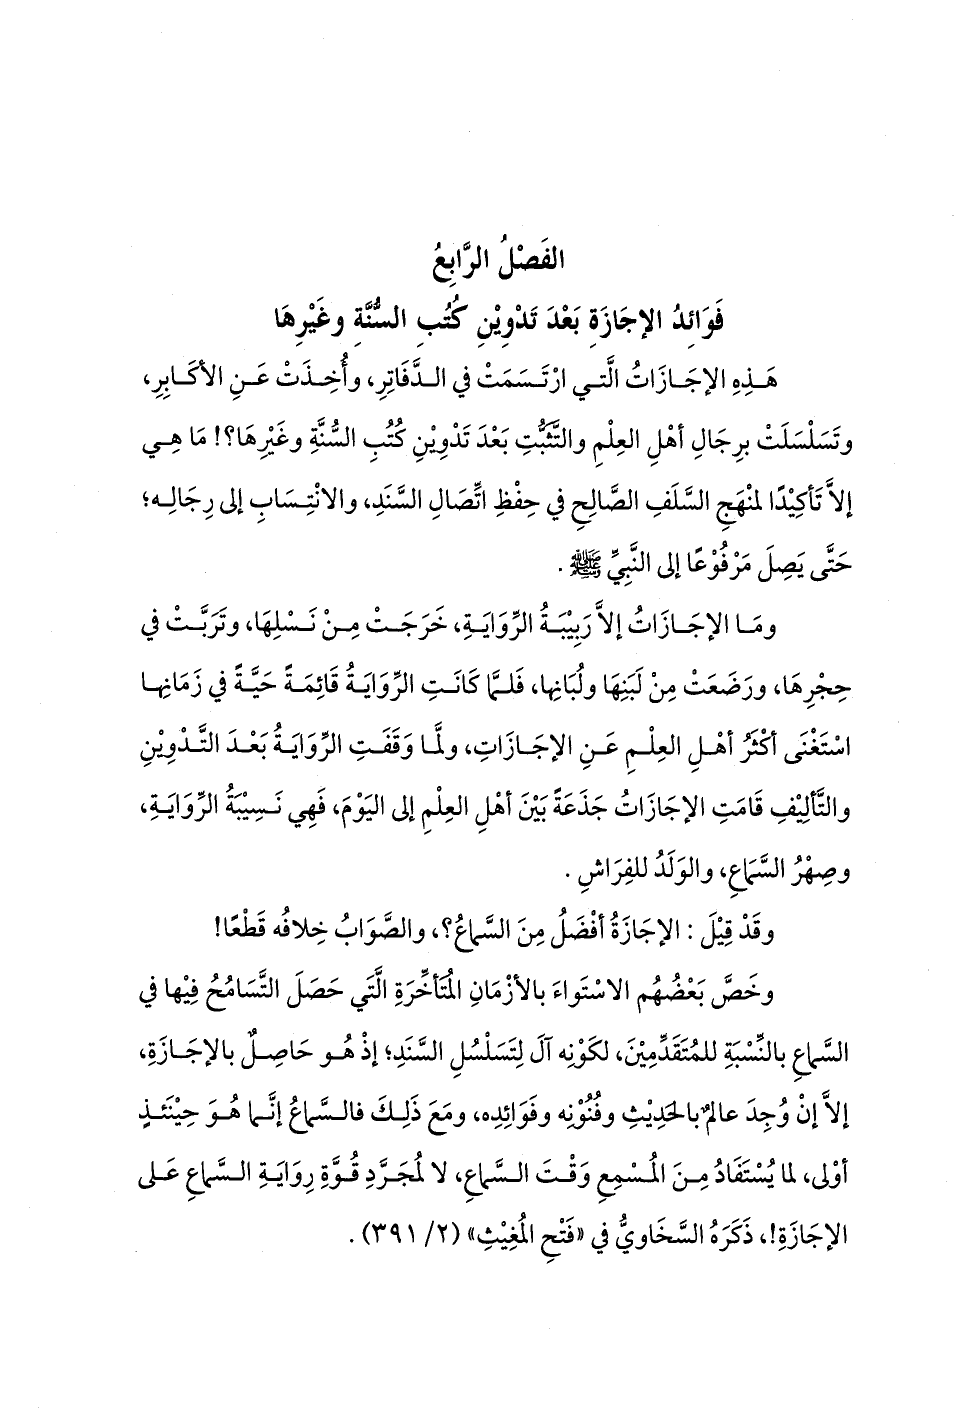 الفَصْلُ الرَّابِعُ
فَوَائِدُ الإجَازَةِ بَعْدَ تَدْوِيْنِ كُتُبِ السُّنَّةِ وغَيْرِهَا
هَـذِهِ الإجَـازَاتُ الَّتـي ارْتَسَمَتْ في الـدَّفَاتِرِ، وأُخِـذَتْ عَـنِ الأكَـابِرِ،
وتَسَلْسَلَتْ برِجَالِ أهْلِ العِلْمِ والتَّثَبُّتِ بَعْدَ تَدْوِيْنِ كُتُبِ السُّنَّةِ وغَيْرِهَا؟! مَا هِـي
إلاَّ تَأكِيْدًا لمنْهَجِ السَّلَفِ الصَّالِحِ في حِفْظِ اتِّصَالِ السَّنَدِ، والانْتِسَابِ إلى رِجَالِـه؛
حَتَّى يَصِلَ مَرْفُوْعًا إلى النَّبِيِّ ﷺ .
ومَـا الإجَـازَاتُ إلاَّ رَبِيْبَـةُ الرِّوَايَـةِ، خَرَجَـتْ مِـنْ نَسْلِهَا، وتَرَبَّـتْ في
حِجْرِهَا، ورَضَعَتْ مِنْ لَبَنِهَا ولُبَانِها، فَلـمَّا كَانَتِ الرِّوَايَةُ قَائِمَـةً حَيَّـةً في زَمَانِهـا
اسْتَغْنَى أكْثَرُ أهْـلِ العِلْـمِ عَـنِ الإجَـازَاتِ، ولَمَّا وَقَفَتِ الرِّوَايَـةُ بَعْـدَ التَّـدْوِيْنِ
والتَّألِيْفِ قَامَتِ الإجَازَاتُ جَذَعَةً بَيْنَ أهْلِ العِلْمِ إلى اليَوْمَ، فَهِي نَـسِيْبَةُ الرِّوَايَـةِ،
وصِهْرُ السَّمَاعِ، والوَلَدُ للفِرَاشِ .
وقَدْ قِيْلَ : الإجَازَةُ أفْضَلُ مِنَ السَّماعُ؟، والصَّوَابُ خِلافُه قَطْعًا!
وخَصَّ بَعْضُهُم الاسْتواءَ بالأزْمَانِ المُتَأخِّرَةِ الَّتي حَصَلَ التَّسَامُحُ فِيْها في
السَّماعِ بالنِّسْبَةِ للمُتَقَدِّمِيْنَ، لكَوْنِه آلَ لِتَسَلْسُلِ السَّنَدِ؛ إذْ هُـو حَاصِـلٌ بالإجَـازَةِ،
إلاَّ إنْ وُجِدَ عالمٌ بالحَدِيْثِ وفُنُوْنِه وفَوَائِدِه، ومَعَ ذَلِـكَ فالـسَّماعُ إنَّـما هُـوَ حِيْنَئـذٍ
أوْلى، لمَا يُسْتَفَادُ مِـنَ المُـسْمِعِ وَقْـتَ الـسَّماعِ، لا لمُجَرَّدِ قُوَّةِ رِوَايَةِ الـسَّماعِ عَـلى
الإجَازَةِ!، ذَكَرَهُ السَّخَاويُّ في «فَتْحِ المُغِيْثِ» (٢/ ٣٩١) .